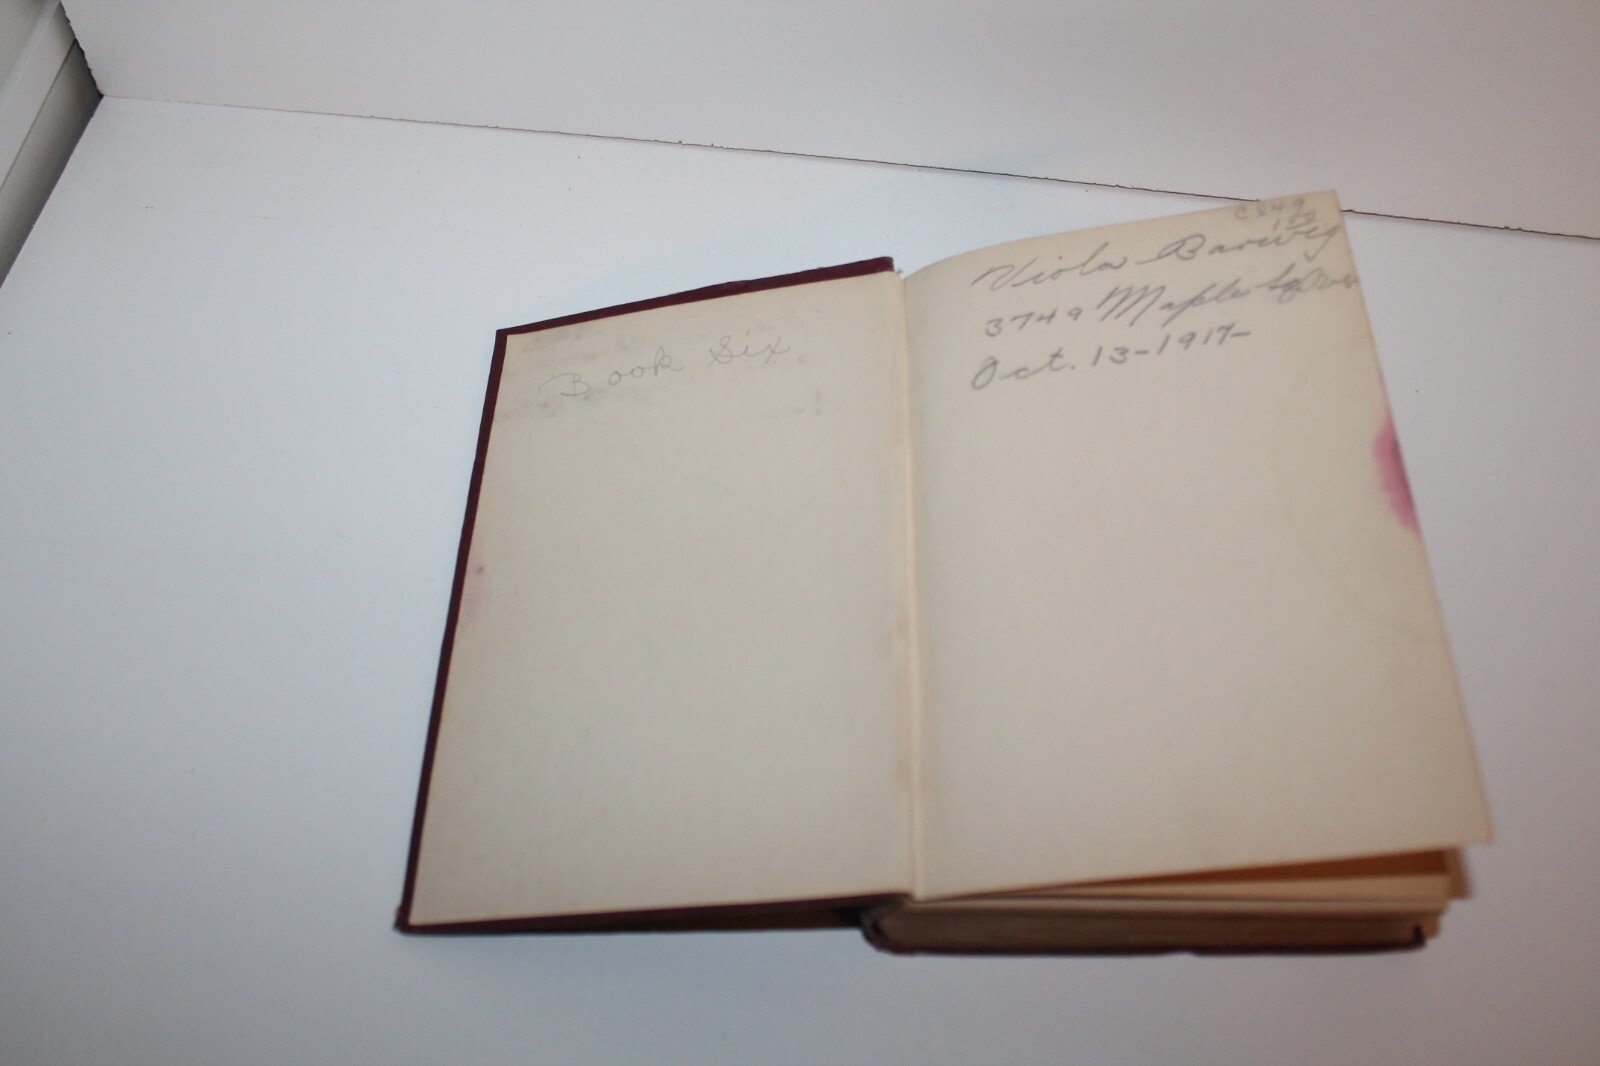 Book Six
Viola Barwig
3749 Maple Sq
Oct. 13-1917-